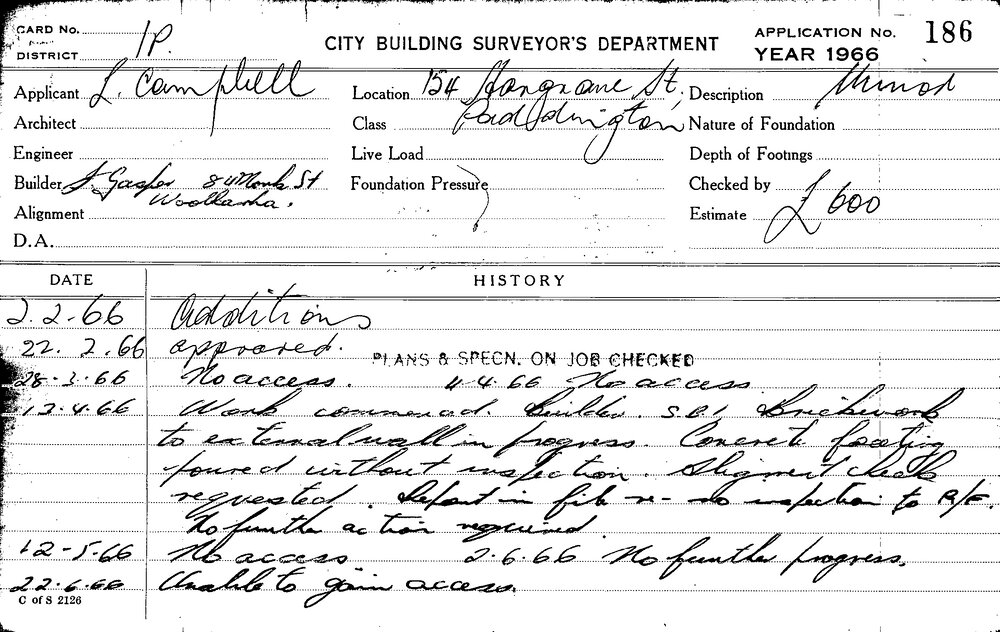 CARD No.
DISTRICT 1P.
CITY BUILDING SURVEYOR'S DEPARTMENT
APPLICATION No. 186
YEAR 1966
Applicant L. Campbell
Location 154 Hargrave St,
Paddington
Description Minor
Architect
Class
Nature of Foundation
Engineer
Live Load
Depth of Footings
Builder J Gasper 84 Monk St
Woollahra.
Foundation Pressure
Checked by
Alignment
Estimate £600
D.A.
DATE HISTORY
2.2.66 Additions
22.2.66 approved.
PLANS & SPECN. ON JOB CHECKED
28.3.66 No access. 4.4.66 No access
13.4.66 Work commenced. Builder. Brickwork
to external wall in progress. Concrete footing
poured without inspection. Alignment check
requested. Report in file re- no inspection to
No further action required.
12-5.66 No access 2.6.66 No further progress.
22.6.66 Unable to gain access.
C of S 2126